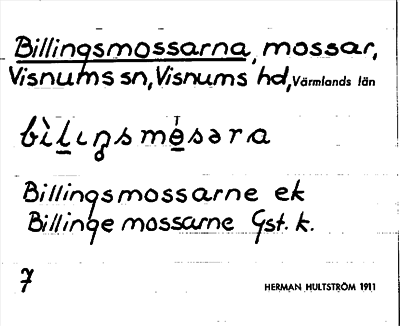 Billingsmossarna, mossar,
Visnums sn, Visnums hd, Värmlands län
bìlıŋsmòsəra
Billingsmossarne ek
Billinge mossarne Gst. k.
7
HERMAN HULTSTRÖM 1911